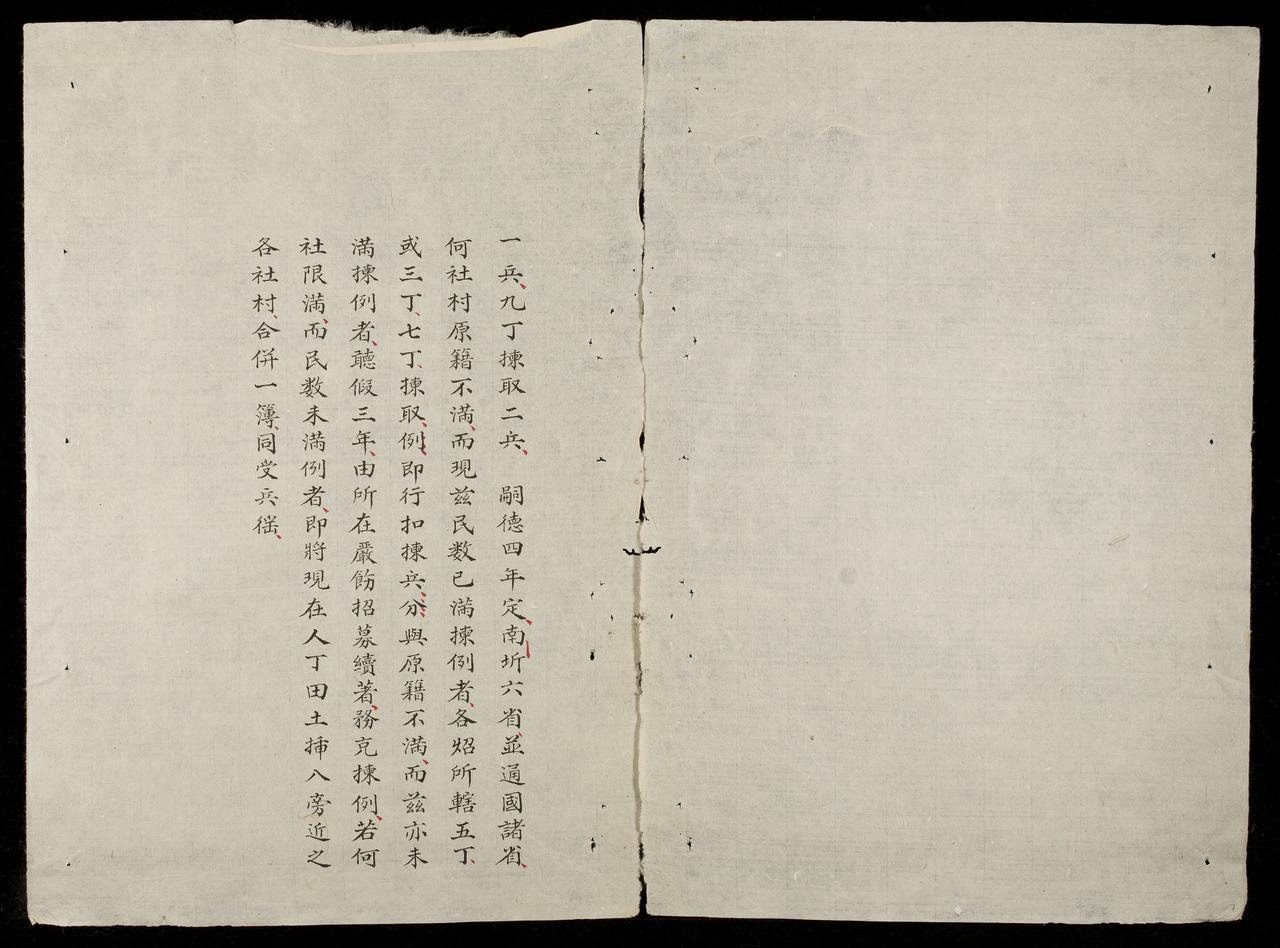 一兵、九丁揀取二兵、　嗣德四年定、南圻六省、並通國諸省、
何社村原籍不満、而現兹民数已満揀例者、各炤所轄五丁、
或三丁、七丁、揀取例、即行扣揀兵、分、與原籍不満、而兹亦未
満揀例者、聽假三年、由所在嚴飭招募續著、務克揀例、若何
社限満、而民数未満例者、即將現在人丁田土揷八旁近之
各社村、合併一簿、同受兵徭、